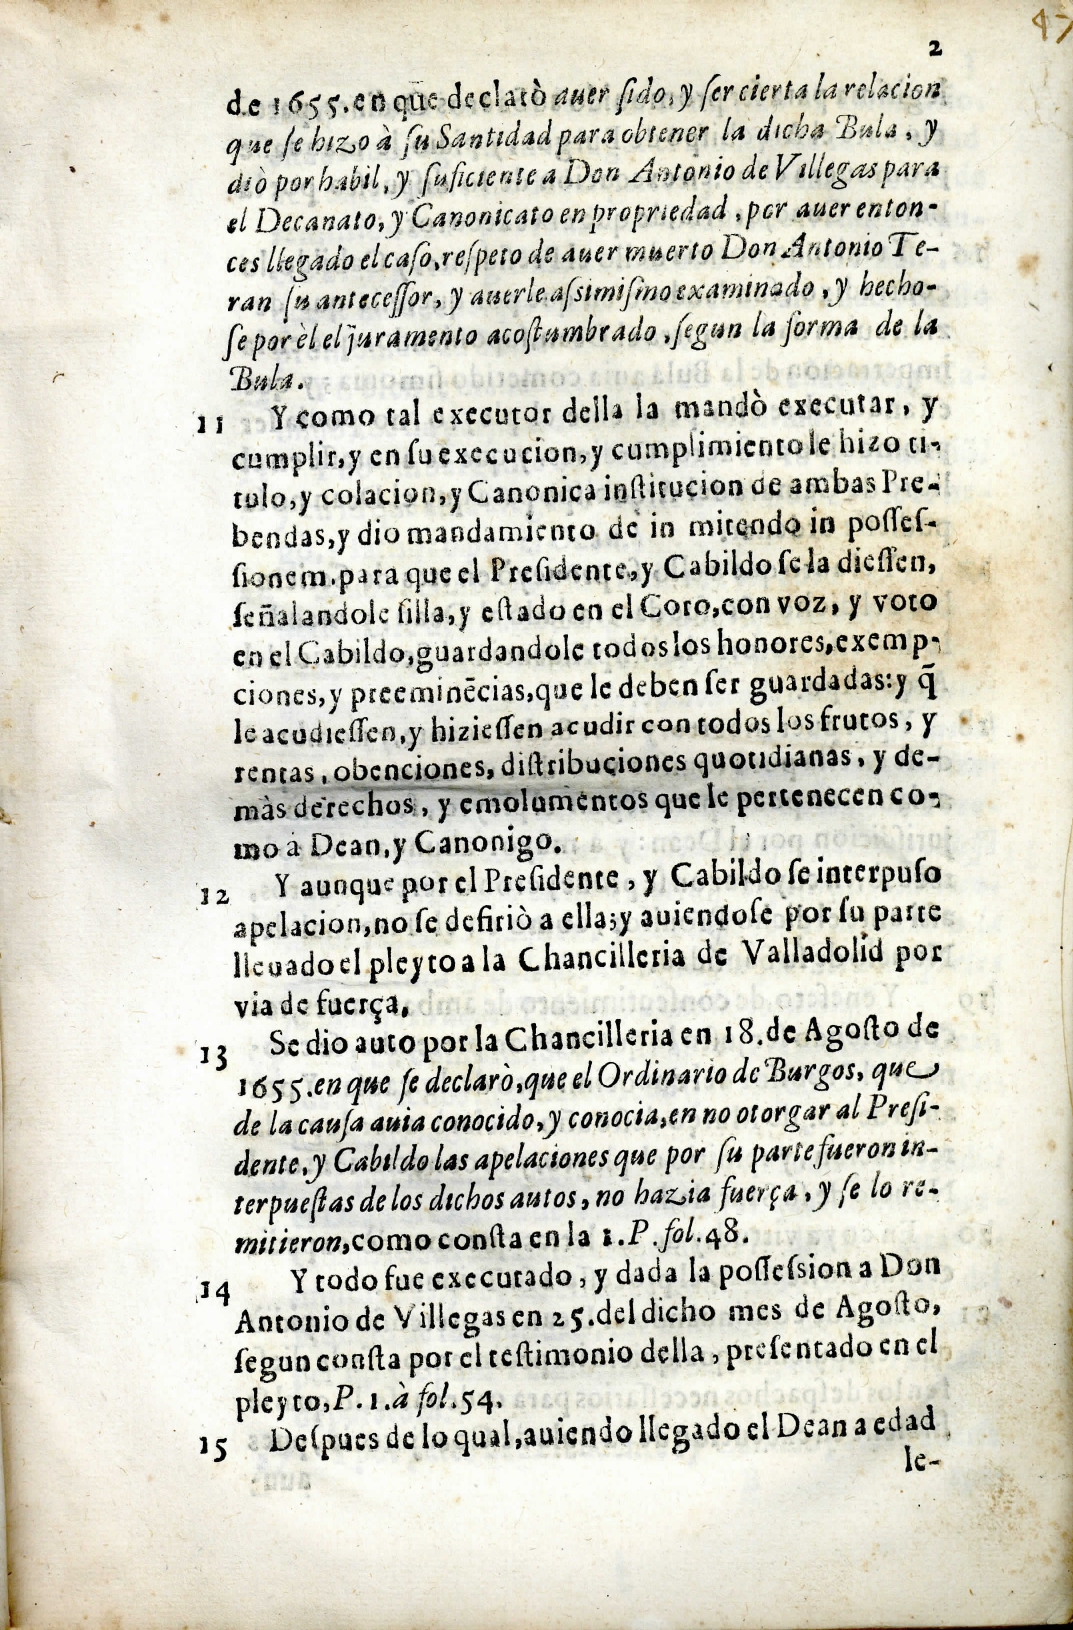 47
2
de 1655. en que declarò auer ſido, y ſer cierta la relacion
que ſe hizo à ſu Santidad para obtener la dicha Bula, y
diò por habil, y ſuficiente a Don Antonio de Villegas para
el Decanato, y Canonicato en propriedad, por auer enton-
ces llegado el caſo, reſpeto de auer muerto Don Antonio Te-
ran ſu anteceſſor, y auerle aſsimiſmo examinado, y hecho-
ſe por èl el juramento acoſtumbrado, ſegun la forma de la
Bula.
11 Y como tal executor della la mandò executar, y
cumplir, y en ſu execucion, y cumplimiento le hizo ti-
tulo, y colacion, y Canonica inſtitucion de ambas Pre-
bendas, y dio mandamiento de in mitendo in poſſeſ-
ſionem. para que el Preſidente, y Cabildo ſe la dieſſen,
ſeñalandole ſilla, y eſtado en el Coro, con voz, y voto
en el Cabildo, guardandole todos los honores, exemp-
ciones, y preeminẽcias, que le deben ſer guardadas: y q̃
le acudieſſen, y hizieſſen acudir con todos los frutos, y
rentas, obenciones, diſtribuciones quotidianas, y de-
màs derechos, y emolumentos que le pertenecen co-
mo a Dean, y Canonigo.
12 Y aunque por el Preſidente, y Cabildo ſe interpuſo
apelacion, no ſe defiriò a ella; y auiendoſe por ſu parte
lleuado el pleyto a la Chancilleria de Valladolid por
via de fuerça.
13 Se dio auto por la Chancilleria en 18. de Agoſto de
1655. en que ſe declarò, que el Ordinario de Burgos, que
de la cauſa auia conocido, y conocia, en no otorgar al Preſi-
dente, y Cabildo las apelaciones que por ſu parte fueron in-
terpueſtas de los dichos autos, no hazia fuerça, y ſe lo re-
mitieron, como conſta en la 1. P. fol. 48.
14 Y todo fue executado, y dada la poſſeſsion a Don
Antonio de Villegas en 25. del dicho mes de Agoſto,
ſegun conſta por el teſtimonio della, preſentado en el
pleyto, P. 1. à fol. 54.
15 Deſpues de lo qual, auiendo llegado el Dean a edad
le-